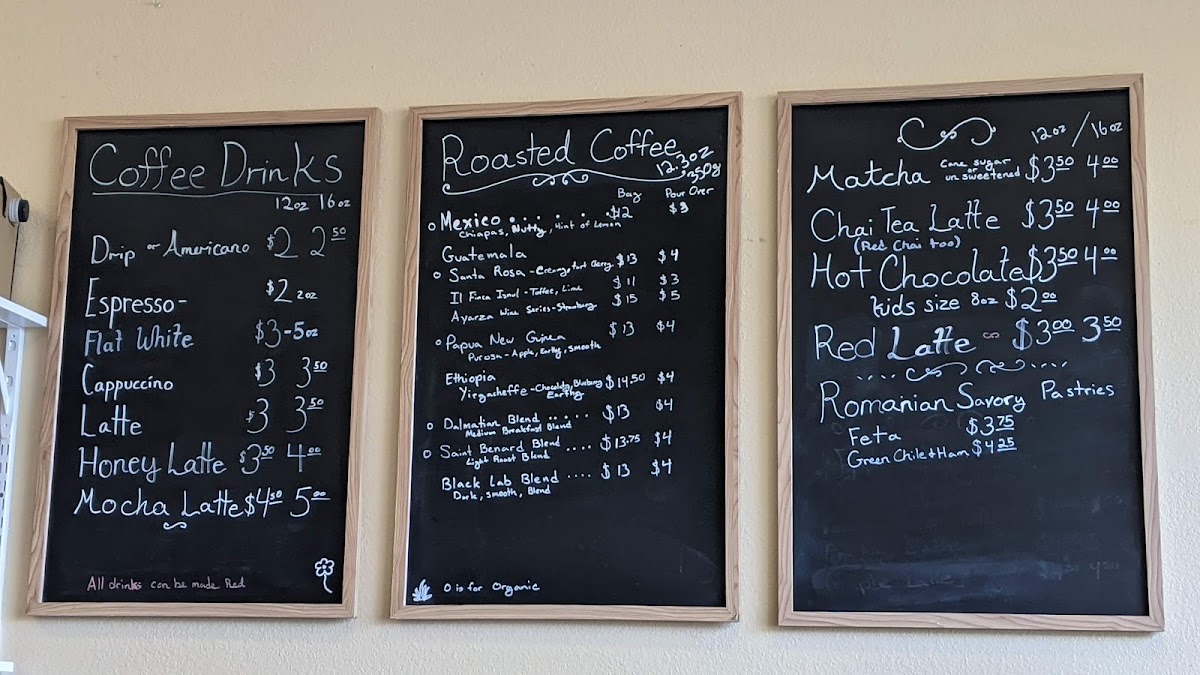 Coffee Drinks
12oz 16oz
Drip or Americano $2 2.50
Espresso- $2 2oz
Flat White $3-5oz
Cappuccino $3 3.50
Latte $3 3.50
Honey Latte $3.50 4.00
Mocha Latte $4.50 5.00
All drinks can be made Red
Roasted Coffee
12.3oz
350g
Bag Pour Over
o Mexico ...... $12 $3
Chiapas, Nutty, Hint of Lemon
Guatemala
o Santa Rosa - Creamy, Tart Cherry $13 $4
Il Finca Isnul - Toffee, Lime $11 $3
Ayarza Wine Series - Strawburry $15 $5
o Papua New Guinea $13 $4
Purosa - Apple, Earthy, Smooth
Ethiopia
Yiregacheffe - Chocolate, Blueburry $14.50 $4
Earthy
o Dalmatian Blend ...... $13 $4
Medium Breakfast Blend
o Saint Benard Blend .... $13.75 $4
Light Roast Blend
Black Lab Blend .... $13 $4
Dark, smooth, Blend
O is for Organic
12oz / 16oz
Matcha Cane sugar or unsweetened $3.50 4.00
Chai Tea Latte $3.50 4.00
(Red Chai too)
Hot Chocolate $3.50 4.00
kids size 8oz $2.00
Red Latte $3.00 3.50
Romanian Savory Pastries
Feta $3.75
Green Chile & Ham $4.25